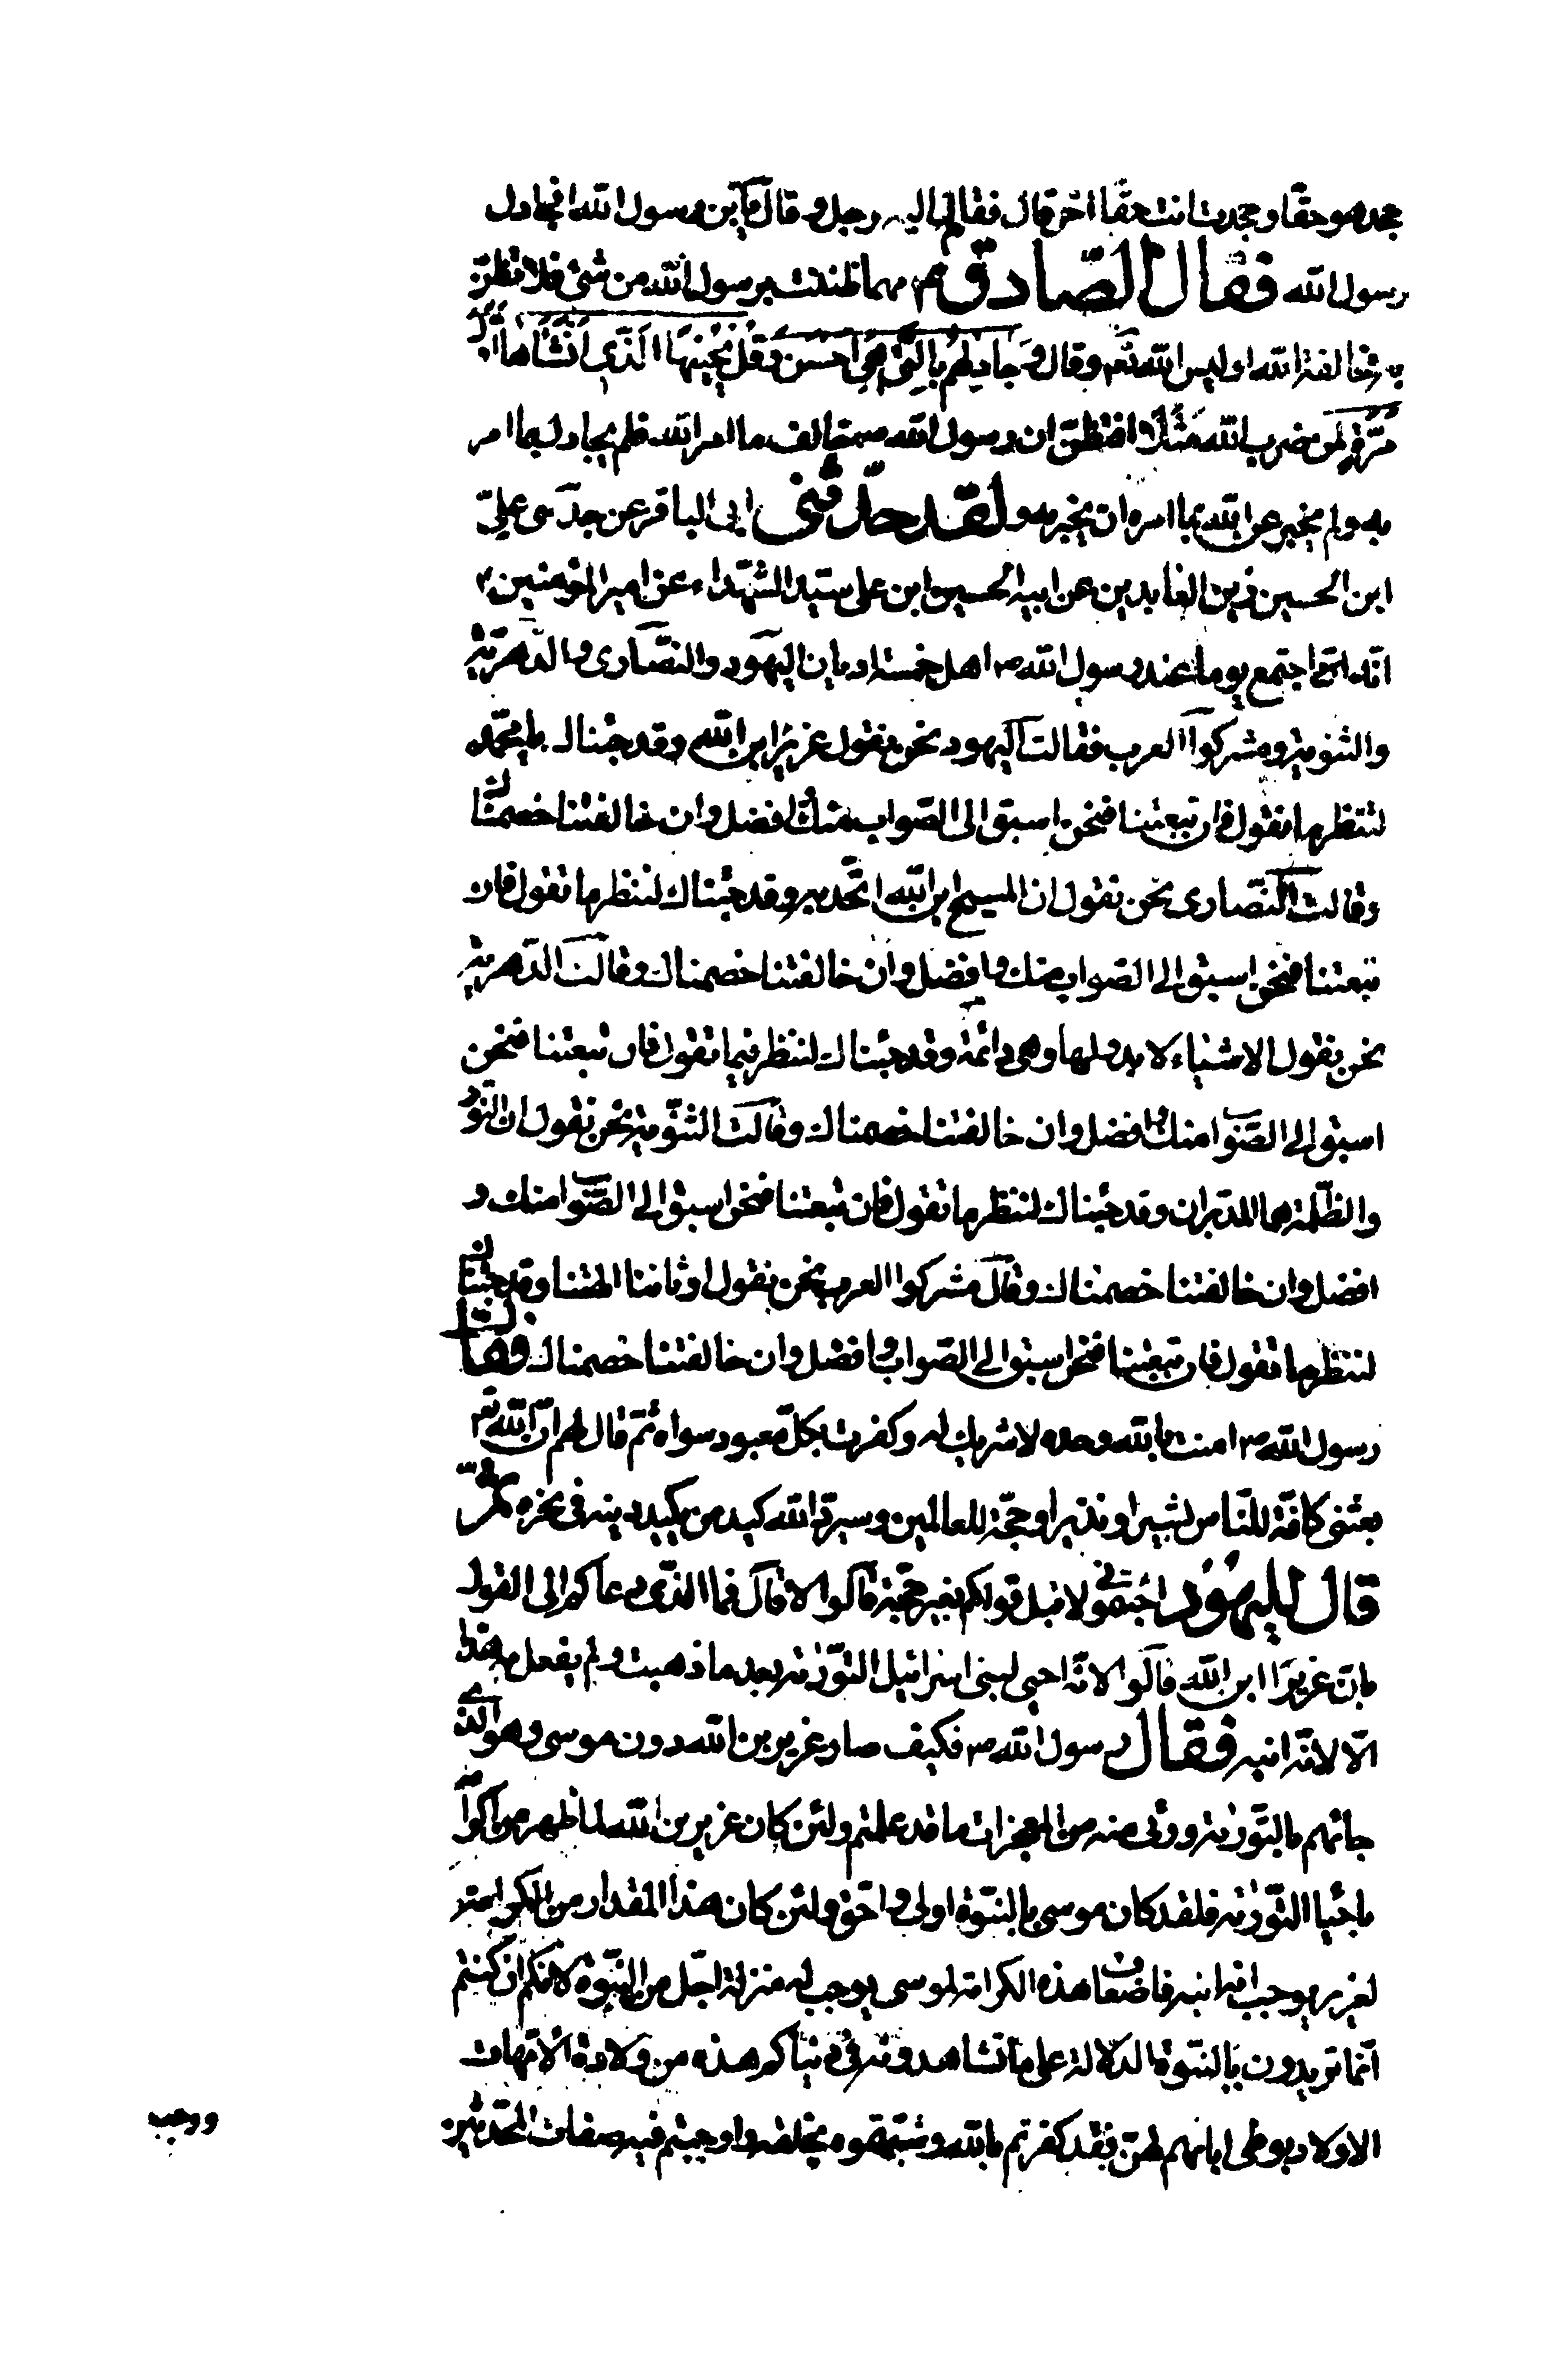 جحد هو حقا وجحدت انت حقا اخر قال فقام اليه رجل و قال يا بن رسول الله افجادل
رسول الله فقال الصادق ع مهما ظننت برسول الله من شئ فلا تظن
به مخالفة الله اوليس الله تعم وقال وَجَادِلهُم بِالَّتي هِيَ اَحسَن وقُل يُحْيِيهَا الَّذِي اَنْشَأَها اَوَّلَ
مَرَّةٍ لمن ضرب الله مَثَلًا افتظن ان رسول الله ص خالف ما امر الله فلم يجادل بما امر
به ولم يخبر عن الله بما امره ان يخبر به و لقد حدّثنى ابى الباقر عن جدّى علىّ
ابن الحسين زين العابدين عن ابيه الحسين ابن على سيد الشهداء عن امير المؤمنين ع
انه اجتمع يوما عند رسول الله ص اهل خمسة اديان اليهود والنصارى و الدّهريّة
والثنوية ومشركوا العرب فقالت اليهود نحن نقول عزير ابن الله وقد جئناك يا محمد
لننظر ما تقول فان تبعتنا فنحن اسبق الى الصّواب منك و افضل وان خالفتنا خصمناك
وقالت النّصارى نحن نقول ان المسيح ابن الله اتّحد به وقد جئناك لننظر ما تقول فان
تبعتنا فنحن اسبق الى الصّواب منك و افضل وان خالفتنا خصمناك وقالت الدّهرية
نحن نقول الاشياء لا بدو لها وهى دائمة وقد جئناك لننظر فيما تقول فان تبعتنا فنحن
اسبق الى الصّواب منك و افضل وان خالفتنا خصمناك وقالت الثنّوية نحن نقول ان النّور
والظّلمة هما المدبران وقد جئناك لننظر ما تقول فان تبعتنا فنحن اسبق الى الصّواب منك و
افضل وان خالفتنا خصمناك وقال مشركوا العرب نحن نقول اوثاننا الهتنا وقد جئناك
لننظر ما تقول فان تبعتنا فنحن اسبق الى الصّواب و افضل وان خالفتنا خصمناك فقال
رسول الله ص امنت بالله وحده لا شريك له وكفرت بكلّ معبود سواه ثمّ قال لهم انّ الله تعم
بعثنى كافّة للنّاس بشيرا ونذيرا وحجّة للعالمين وسيردّ الله كيد من يكيد دينه فى نحره ثمّ
قال لليهُود اجئتمونى لاقبل قولكم بغير حجّة قالوا لا قال فما الذّى دعاكم الى القول
بان عزيرا ابن الله قالوا لانّه احيى لبنى اسرائيل التّورٰية بعد ما ذهبت ولم يفعل به هذا
الّا لانّه ابنه فقال رسول الله ص فكيف صار عزير بن الله دون موسى وهو الّذى
جائهم بالتّورٰية ورئى منه من المعجزات ما قد علمتم ولئن كان عزير بن الله لما اظهر من اكرام
باحياء التّورٰية فلقد كان موسى بالبنوّة اولى و احق ولئن كان هذا المقدار من الكرامة
لعزير يوجب انه ابنه فاضعاف هذه الكرامة لموسى يوجب له منزلة اجلّ من البنوّة لانّكم ان كنتم
انّما تريدون بالبنّوة الدلالة على ما تشاهدونه فى دنياكم هذه من ولادة الامّهات
الاولاد بوطى ابائهم لهنّ فقد كفرتم بالله وشبّهتموه بخلقه واوجبتم فيه صفات المحدثين
ووجب